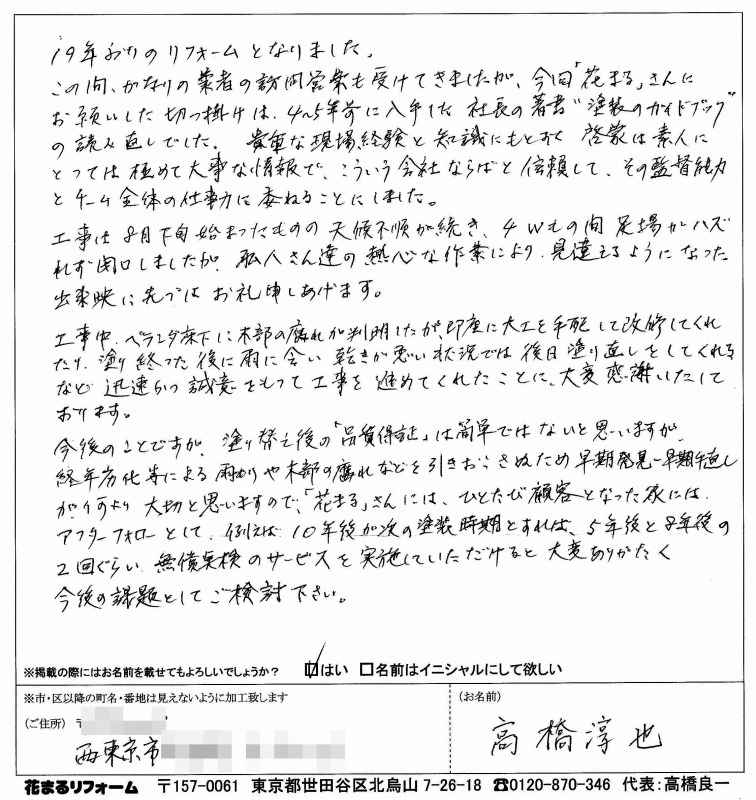 19年ぶりのリフォームとなりました。
この間、かなりの業者の訪問営業も受けてきましたが、今回「花まる」さんに
お願いした切っ掛けは、4~5年前に入手した社長の著書"塗装のガイドブック"
の読み直しでした。貴重な現場経験と知識にもとずく啓蒙は素人に
とっては極めて大事な情報で、こういう会社ならばと信頼して、その監督能力
とチーム全体の仕事力に委ねることにしました。
工事は8月下旬始まったものの天候不順が続き、4Wもの間足場がハズ
れず閉口しましたが、職人さん達の熱心な作業により、見違えるようになった
出来映に先づはお礼申しあげます。
工事中、ベランダ床下に木部の腐れが判明したが、即座に大工を手配して改修してくれ
たり、塗り終った後に雨に会い乾きが悪い状況では後日塗り直しをしてくれる
など迅速かつ誠意をもって工事を進めてくれたことに、大変感謝いたして
おります。
今後のことですが、塗り替え後の「品質保証」は簡単ではないと思いますが、
経年劣化等による雨もりや木部の腐れなどを引きおこさぬため早期発見-早期手直し
が何より大切と思いますので、「花まる」さんには、ひとたび顧客となった家には、
アフターフォローとして、例えば10年後が次の塗装時期とすれば、5年後と8年後の
2回ぐらい無償点検のサービスを実施していただけると大変ありがたく
今後の課題としてご検討下さい。
※掲載の際にはお名前を載せてもよろしいでしょうか? ☑はい □名前はイニシャルにして欲しい
※市・区以降の町名・番地は見えないように加工致します
(ご住所) 〒
西東京市
(お名前)
高橋淳也
花まるリフォーム 〒157-0061 東京都世田谷区北烏山 7-26-18 ☎0120-870-346 代表:高橋良一